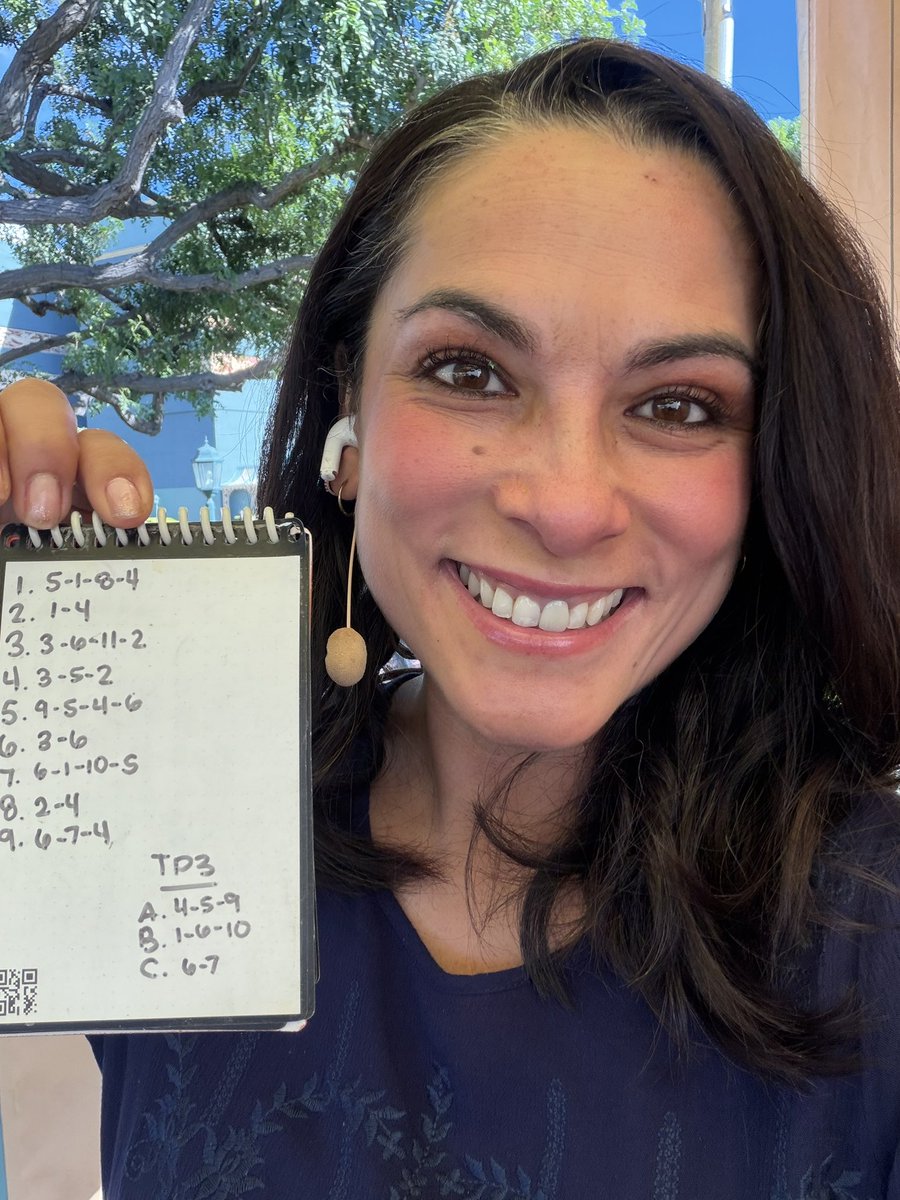 1. 5-1-8-4
2. 1-4
3. 3-6-11-2
4. 3-5-2
5. 9-5-4-6
6. 3-6
7. 6-1-10-5
8. 2-4
9. 6-7-4
TP3
A. 4-5-9
B. 1-6-10
C. 6-7